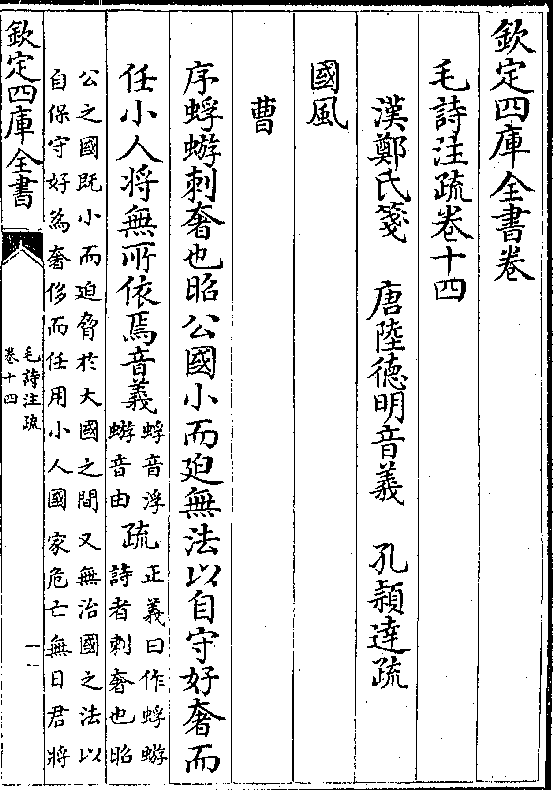 欽定四庫全書卷
毛詩注疏卷十四
漢鄭氏箋 唐陸德明音義 孔穎達疏
國風
曹
序蜉蝣刺奢也昭公國小而廹無法以自守好奢而
任小人將無所依焉音義
蜉音浮
蝣音由
疏
正義曰作蜉蝣
詩者刺奢也昭
公之國既小而迫脅於大國之間又無治國之法以
自保守好為奢侈而任用小人國家危亡無日君將
欽定四庫全書
毛詩注疏
卷十四
一